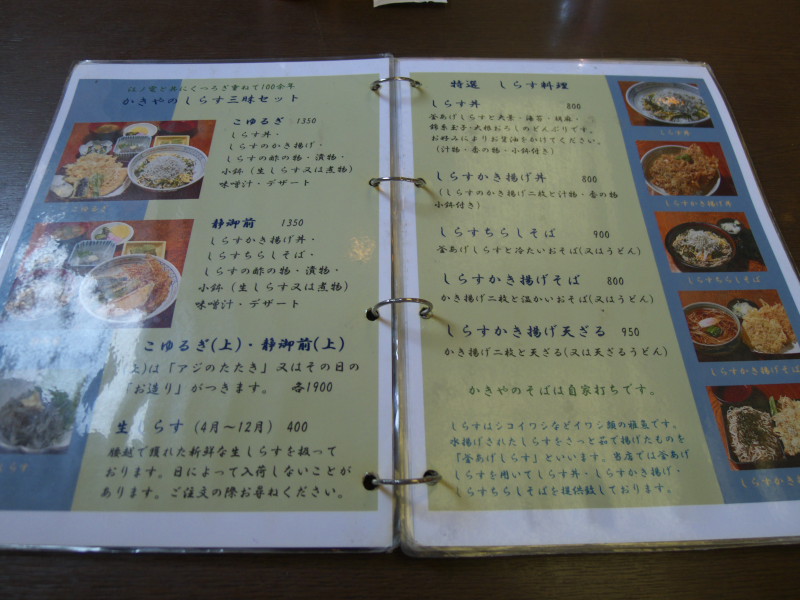 江ノ電と共にくつろぎ重ねて100余年
かきやのしらす三昧セット
こゆるぎ 1350
しらす丼・
しらすのかき揚げ・
しらすの酢の物・漬物・
小鉢(生しらす又は煮物)
味噌汁・デザート
静御前 1350
しらすかき揚げ丼・
しらすちらしそば・
しらすの酢の物・漬物・
小鉢(生しらす又は煮物)
味噌汁・デザート
こゆるぎ(上)・静御前(上)
(上)は「アジのたたき」又はその日の
「お造り」がつきます。 各1900
生しらす(4月〜12月) 400
腰越で獲れた新鮮な生しらすを扱って
おります。日によって入荷しないことが
あります。ご注文の際お尋ねください。
特選 しらす料理
しらす丼 800
釜あげしらすと大葉・海苔・胡麻・
錦糸玉子・大根おろしのどんぶりです。
お好みによりお醤油をかけてください。
(汁物・香の物・小鉢付き)
しらすかき揚げ丼 800
(しらすのかき揚げ二枚と汁物・香の物
小鉢付き)
しらすちらしそば 900
釜あげしらすと冷たいおそば(又はうどん)
しらすかき揚げそば 800
かき揚げ二枚と温かいおそば(又はうどん)
しらすかき揚げ天ざる 950
かき揚げ二枚と天ざる(又は天ざるうどん)
かきやのそばは自家打ちです。
しらすはシコイワシなどイワシ類の稚魚です。
水揚げされたしらすをさっと茹で揚げたものを
「釜あげしらす」といいます。当店では釜あげ
しらすを用いてしらす丼・しらすかき揚げ・
しらすちらしそばを提供致しております。
しらす丼
しらすかき揚げ丼
しらすちらしそば
しらすかき揚げそ
しらすかき